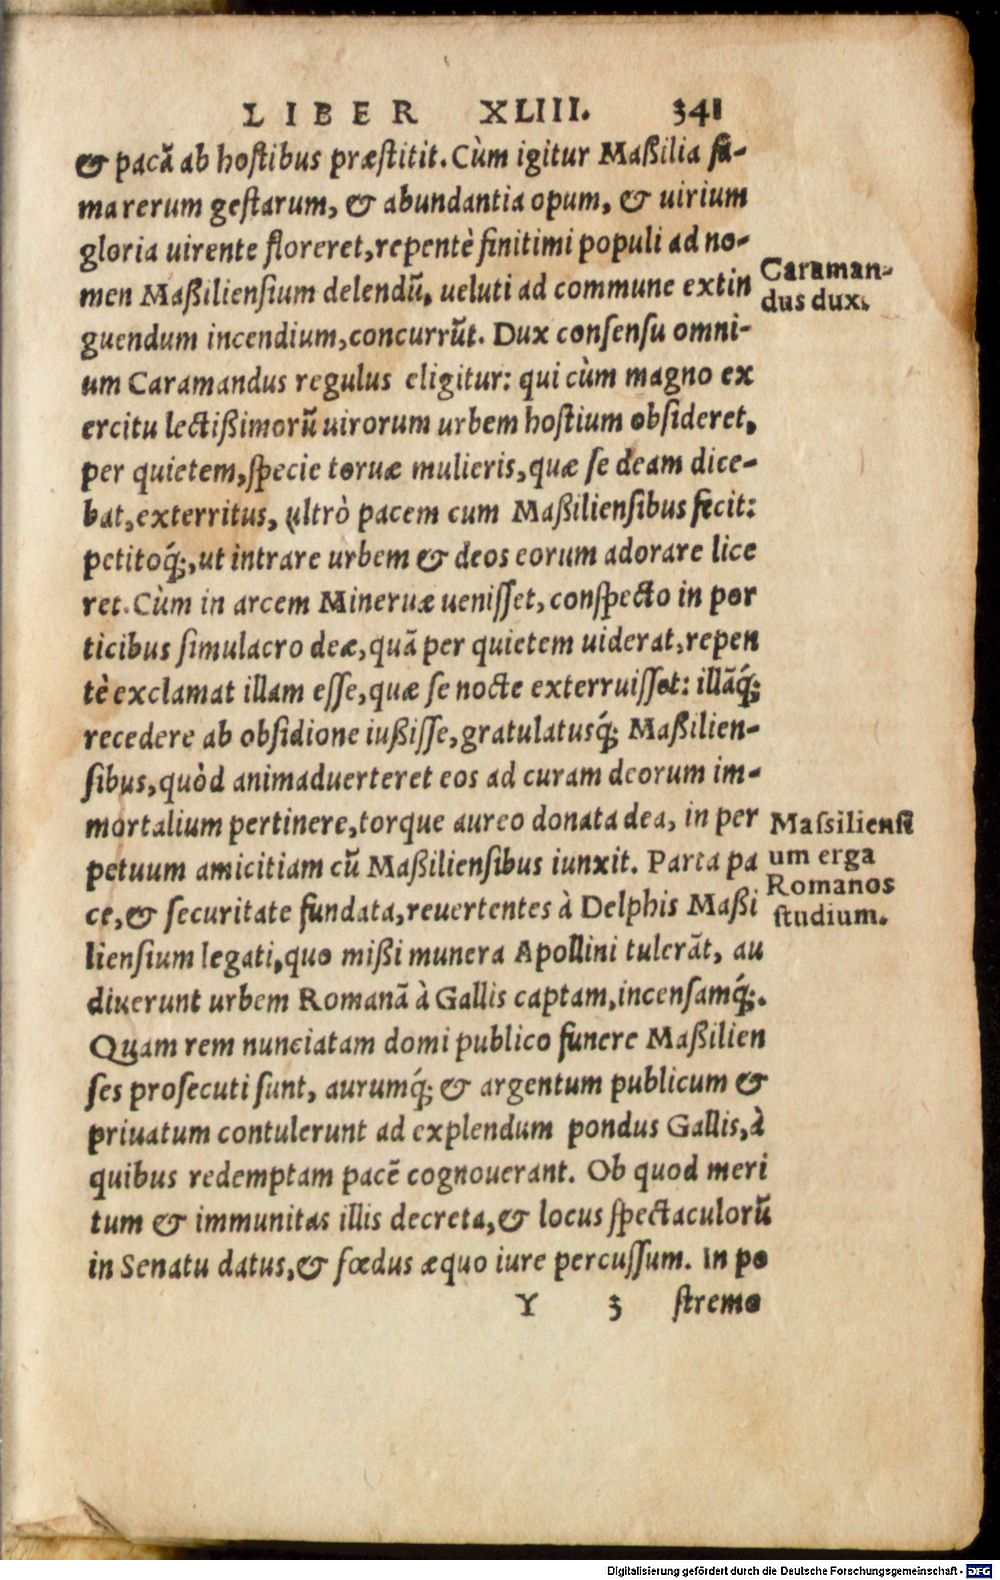 LIBER XLIII. 341
& pacā ab hostibus præstitit. Cùm igitur Maßilia fa-
ma rerum gestarum, & abundantia opum, & uirium
gloria uirente floreret, repentè finitimi populi ad no-
men Maßiliensium delendū, ueluti ad commune extin
guendum incendium, concurrūt. Dux consensu omni-
um Caramandus regulus eligitur: qui cùm magno ex
ercitu lectißimorū uirorum urbem hostium obsideret,
per quietem, specie toruæ mulieris, quæ se deam dice-
bat, exterritus, ultrò pacem cum Maßiliensibus fecit:
petitoq́;, ut intrare urbem & deos eorum adorare lice
ret. Cùm in arcem Mineruæ uenisset, conspecto in por
ticibus simulacro deæ, quā per quietem uiderat, repen
tè exclamat illam esse, quæ se nocte exterruisset: illāq́;
recedere ab obsidione iußisse, gratulatusq́; Maßilien-
sibus, quòd animaduerteret eos ad curam deorum im-
mortalium pertinere, torque aureo donata dea, in per
petuum amicitiam cū Maßiliensibus iunxit. Parta pa
ce, & securitate fundata, reuertentes à Delphis Maßi
liensium legati, quo mißi munera Apollini tulerāt, au
diuerunt urbem Romanā à Gallis captam, incensamq́;.
Quam rem nunciatam domi publico funere Maßilien
ses prosecuti sunt, aurumq́; & argentum publicum &
priuatum contulerunt ad explendum pondus Gallis, à
quibus redemptam pacē cognouerant. Ob quod meri
tum & immunitas illis decreta, & locus spectaculorū
in Senatu datus, & fœdus æquo iure percussum. In po
Y 3 stremo
Caraman-
dus dux.
Massiliensi
um erga
Romanos
studium.
Digitalisierung gefördert durch die Deutsche Forschungsgemeinschaft - DFG